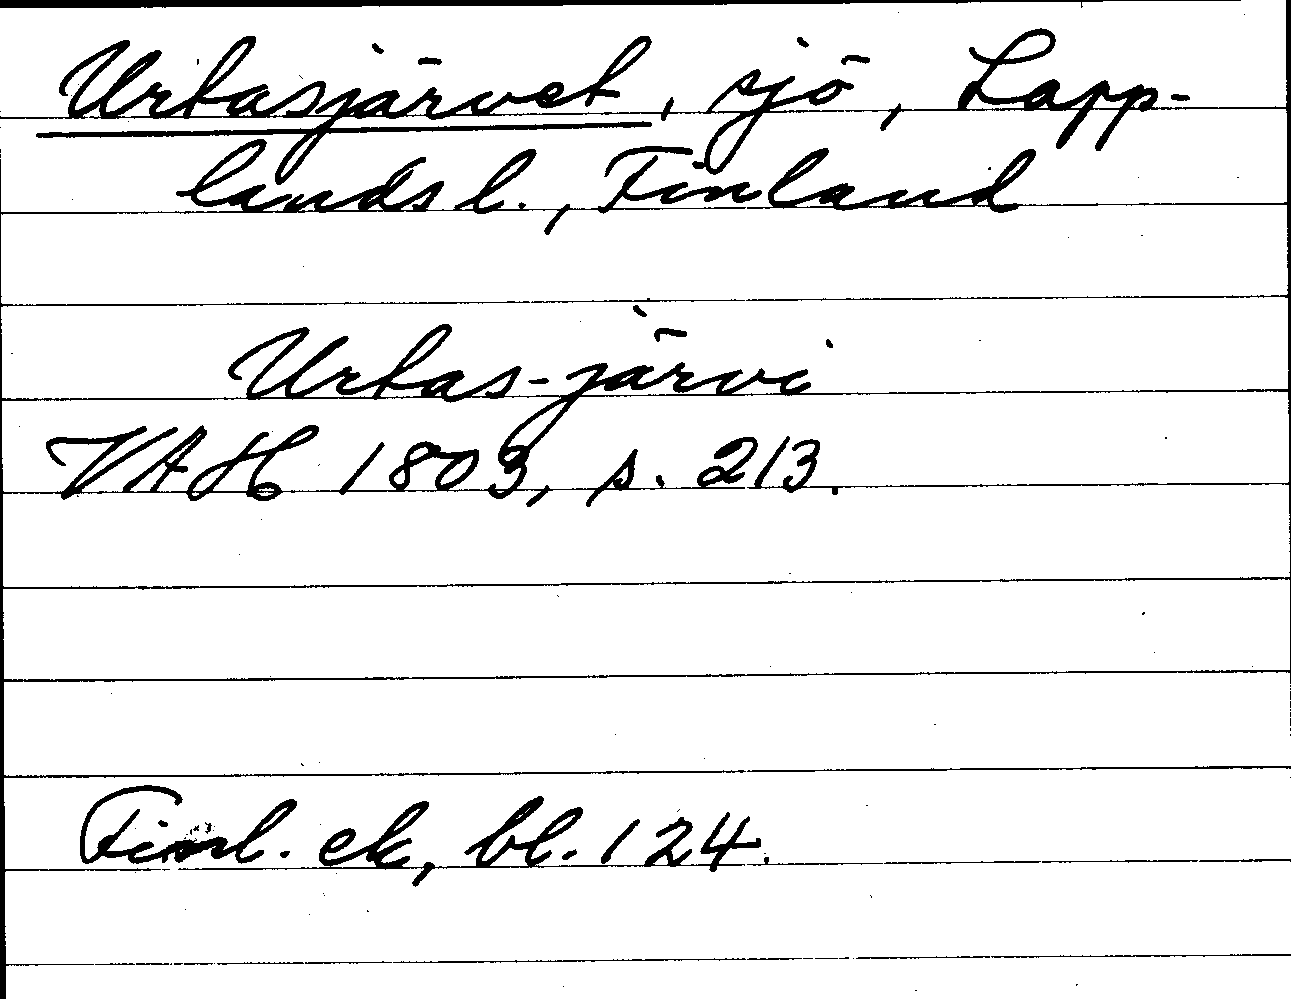 Urtasjärvet, sjö, Lapp-
lands l., Finland
Urtas-järvi
VAH 1803, s. 213.
Finl. ek, bl. 124.